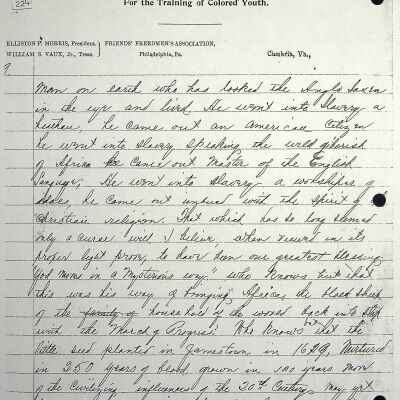 224
For the Training of Colored Youth.
ELLISTON P. MORRIS, President. } FRIENDS' FREEDMEN'S ASSOCIATION,
WILLIAM S. VAUX, Jr., Treas. } Philadelphia, Pa.
Cambria, Va.,
7.
man on earth who has looked the Anglo Saxon
in the eye and lived. He went into Slavery a
heathen, he came out an American Citizen
he went into Slavery speaking the wild gibberish
of Africa he came out Master of the English
Language; He went into Slavery a worshiper of
idols, he came out imbued with the spirit of
Christian religion. That which has so long seemed
only a curse will I believe, when viewed in its
proper light prove, to have been our greatest blessing,
"God moves in a Mysterious way." who Knows but that
this was his way of bringing Africa, the black sheep
of the family of household of the world back into step
with the March of Progress! Who Knows but that the
little seed planted in Jamestown in 1629, Nurtured
in 250 years of blood, grown in 100 years more
of the Civilizing influences of the 20th Century, may yet